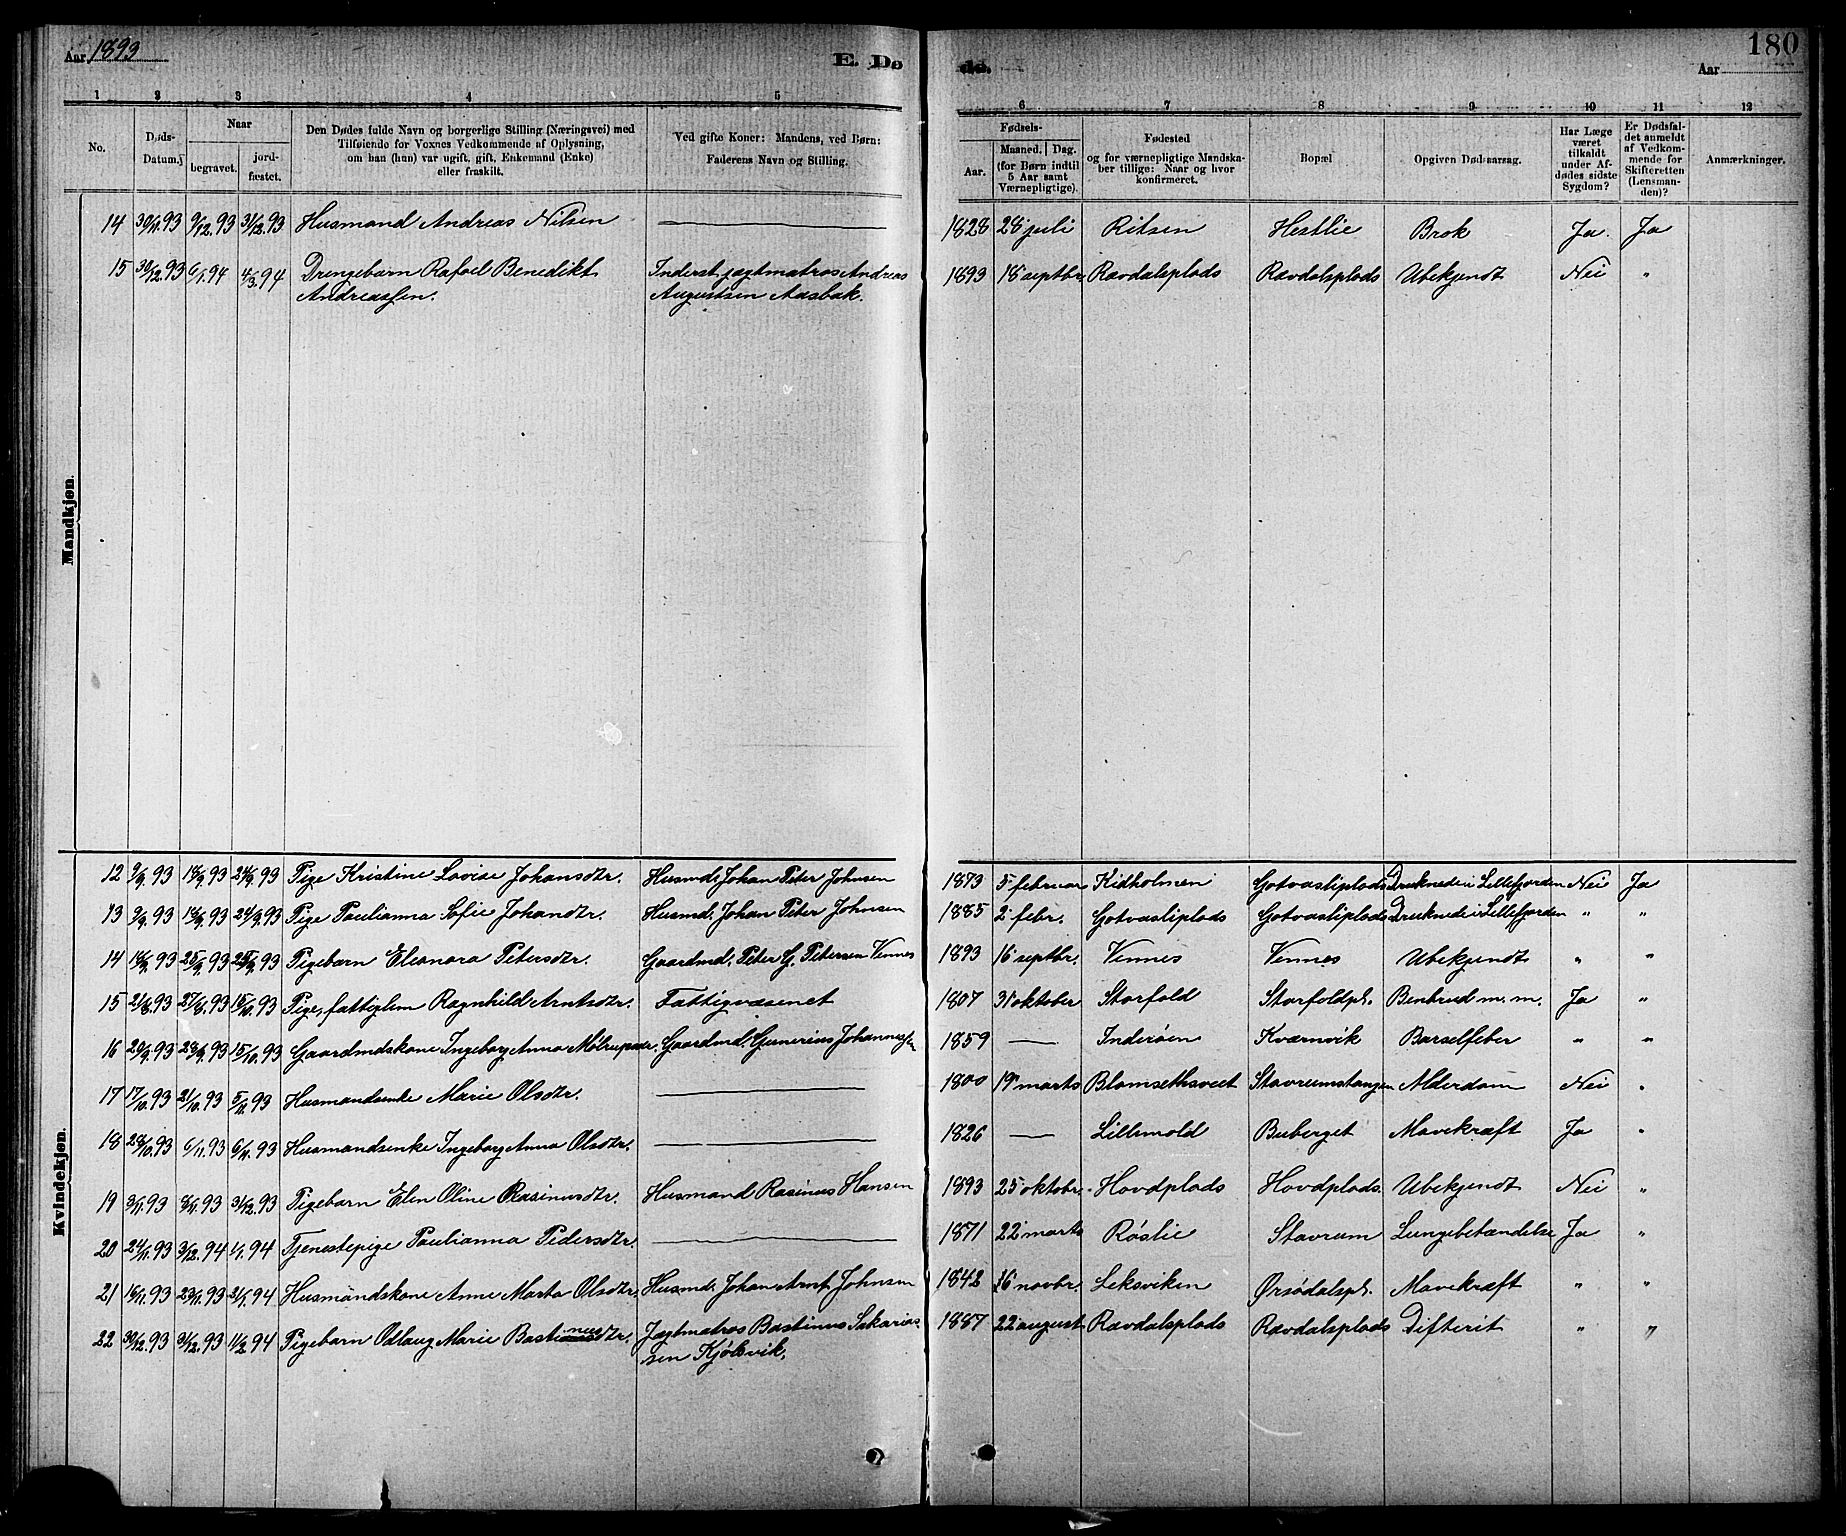 Aar 1893
E. Dø
de.
Aar
180
1 2 3 4 5 6 7 8 9 10 11 12
No.
Døds-Datum.
Naar
begravet.
jordfæstet.
Den Dødes fulde Navn og borgerlige Stilling (Næringsvei) med
Tilføiende for Voxnes Vedkommende af Oplysning,
om han (hun) var ugift, gift, Enkemand (Enke)
eller fraskilt.
Ved gifte Koner: Mandens, ved Børn:
Faderens Navn og Stilling.
Fødsels-
Aar.
Maaned. Dag.
(for Børn indtil
5 Aar samt
Værnepligtige).
Fødested
og for værnepligtige Mandska-
ber tillige: Naar og hvor
konfirmeret.
Bopæl
Opgiven Dødsaarsag.
Har Læge
været
tilkaldt
under Af-
dødes sidste
Sygdom?
Er Dødsfal-
det anmeldt
af Vedkom-
mende for
Skifteretten
(Lensman-
den)?
Anmærkninger.
Mandkjøn.
14 30/11.93 9/12.93 31/12.93 Husmand Andreas Nilsen — 1828 28 juli Ritsen Hestlie Brok Ja. Ja
15 30/12.93 6/1.94 4/3.94 Drengebarn Rafael Benedikt Inderst jægtmatros Andreas 1893 18 septbr. Ravdalsplads Ravdalsplads Ubekjendt Nei "
Andreassen. Augustsen Aasbak.
Kvindekjøn.
12 9/9.93 18/9.93 24/9.93 Pige Kristine Lovise Johansdtr. Husmd. Johan Peter Johnsen 1873 5 februar Kidholmen Gotvasliplads Druknede i Lillefjorden Nei Ja
13 9/9.93 18/9.93 24/9.93 Pige Paulianna Sofie Johandtr. Husmd. Johan Peter Johnsen 1885 2 febr. Gotvasliplads Gotvasliplads Druknede i Lillefjorden " "
14 16/9.93 25/9.93 25/9.93 Pigebarn Eleonora Petersdtr. Gaardmd. Peter G. Petersen Vennes 1893 16 septbr. Vennes Vennes Ubekjendt " "
15 21/8.93 27/8.93 15/10.93 Pige, fattiglem Ragnhild Arntsdtr. Fattigvæsenet 1807 31 oktober Storfold Storfoldpl. Benbrud m. m. Ja "
16 20/9.93 28/9.93 15/10.93 Gaardmdskone Ingeborg Anna Mölrupsdr. Gaardmd. Gunerius Johannessen 1859 — Inderøen Kværnvik Barselfeber " "
17 17/10.93 21/10.93 5/11.93 Husmandsenke Marie Olsdtr. — 1800 19 marts Blomsethsveet Stavrumstangen Alderdom Nei "
18 28/10.93 6/11.93 6/11.93 Husmandsenke Ingeborg Anna Olsdtr. — 1826 — Lillemold Buberget Mavekræft Ja "
19 3/11.93 8/11.93 31/12.93 Pigebarn Elen Oline Rasinusdtr. Husmand Rasinus Hansen 1893 25 oktobr. Hovdplads Hovdplads. Ubekjendt Nei "
20 24/11.93 3/12.94 1/1.94 Tjenestepige Paulianna Pedersdtr. — 1871 22 marts Røslie Stavrum Lungebetændelse Ja "
21 16/11.93 23/11.93 21/1.94 Husmandskone Anne Marta Olsdtr. Husmd. Johan Arnt Johnsen 1842 16 novbr. Leksviken Ørsødalspl. Mavekræft " "
22 30/12.93 31/12.93 11/2.94 Pigebarn Odlaug Marie Bastinusdtr. Jægtmatros Bastinus Sakarias- 1887 22 august Ravdalsplads Ravdalsplads Difterit " "
sen Kjølsvik.